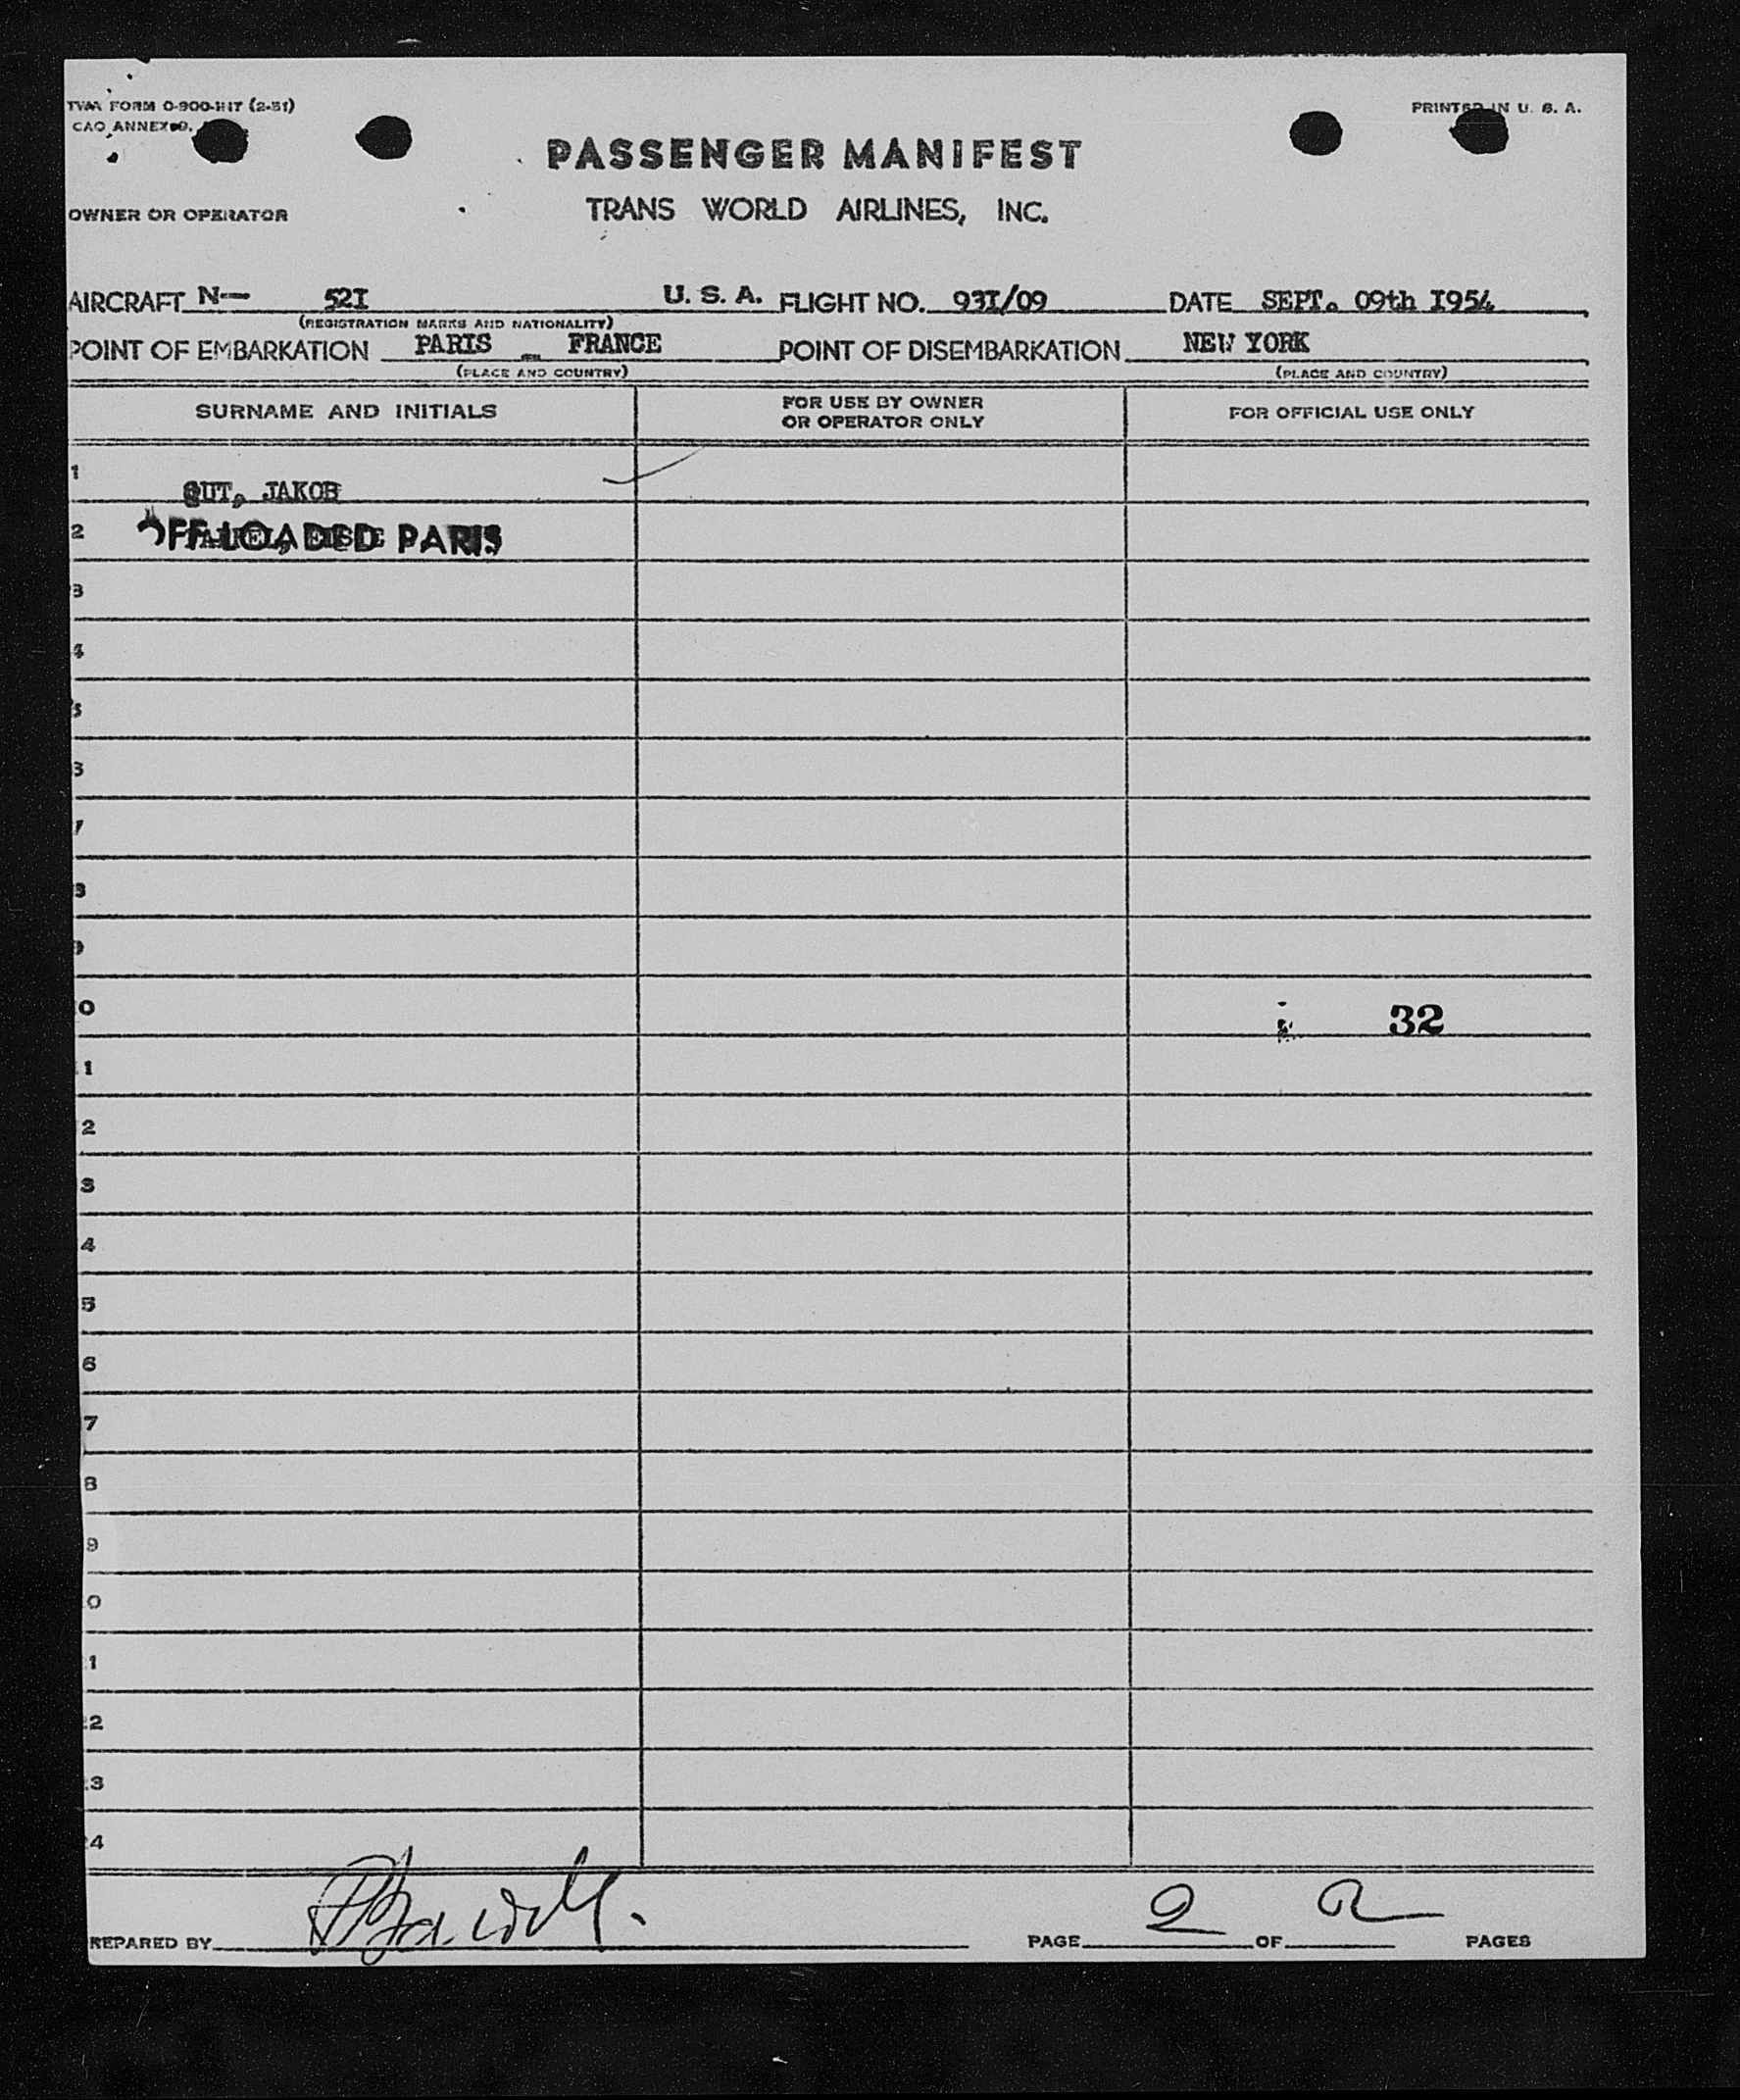 TWA FORM O-900-H17 (2-51)
PRINTED IN U. S. A.
CAO ANNEX 9,
PASSENGER MANIFEST
OWNER OR OPERATOR
TRANS WORLD AIRLINES, INC.
AIRCRAFT N— 52I U. S. A. FLIGHT NO. 93I/09 DATE SEPT. 09th I954
(REGISTRATION MARKS AND NATIONALITY)
POINT OF EMBARKATION PARIS - FRANCE POINT OF DISEMBARKATION NEW YORK
(PLACE AND COUNTRY) (PLACE AND COUNTRY)
SURNAME AND INITIALS FOR USE BY OWNER OR OPERATOR ONLY FOR OFFICIAL USE ONLY
1 GUT, JAKOB
2 OFF-LOADED PARIS
3
4
5
6
7
8
9
10 32
11
12
13
14
15
16
17
18
19
20
21
22
23
24
PREPARED BY PAGE 2 OF 2 PAGES